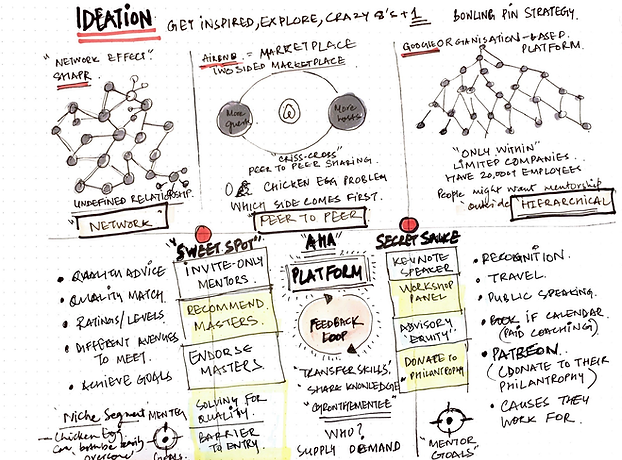 IDEATION
GET INSPIRED, EXPLORE, CRAZY 8's + 1
BOWLING PIN STRATEGY.
"NETWORK EFFECT"
SHAPR
UNDEFINED RELATIONSHIP.
"NETWORK"
AIRBNB = MARKETPLACE
TWO SIDED MARKETPLACE
More guests
More hosts
"CRISS-CROSS"
PEER TO PEER SHARING.
CHICKEN EGG PROBLEM
WHICH SIDE COMES FIRST.
"PEER TO PEER"
GOOGLE ORGANISATION-BASED
PLATFORM.
"ONLY WITHIN"
LIMITED COMPANIES..
HAVE 20,000+ EMPLOYEES
People might want mentorship
outside
"HIERARCHICAL"
• QUALITY ADVICE
• QUALITY MATCH.
• RATINGS/LEVELS
• DIFFERENT AVENUES
TO MEET.
• ACHIEVE GOALS
Niche Segment
Chicken Egg
can
overcome
MENTEE
GOALS.
"SWEET SPOT"
INVITE-ONLY
MENTORS.
RECOMMEND
MASTERS.
ENDORSE
MASTERS.
SOLVING FOR
QUALITY.
BARRIER
TO ENTRY.
"AHA"
PLATFORM
FEEDBACK
LOOP
"TRANSFER SKILLS'
SHARK KNOWLEDGE
WHO?
SUPPLY DEMAND
SECRET SAUCE
KEYNOTE
SPEAKER
WORKSHOP
PANEL
ADVISORY
"EQUITY"
DONATE TO
PHILANTHROPY
• RECOGNITION.
• TRAVEL.
• PUBLIC SPEAKING.
• BOOK IF CALENDAR.
(PAID COACHING)
• PATREON.
(DONATE TO THEIR
PHILANTHROPY)
• CAUSES THEY
WORK FOR.
MENTOR
GOALS